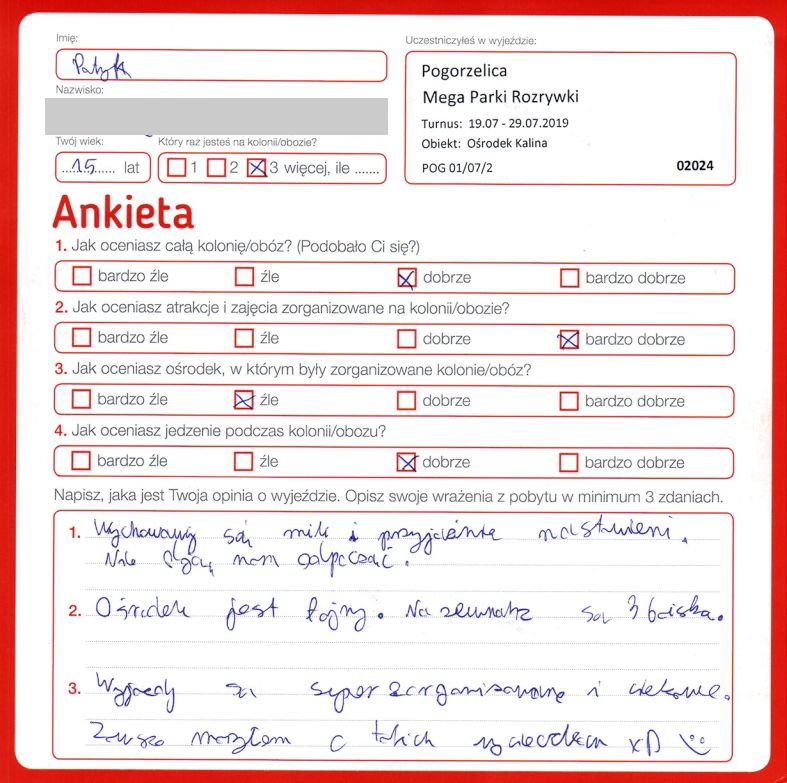 Imię:
Uczestniczyłeś w wyjeździe:
Patryk
Pogorzelica
Mega Parki Rozrywki
Nazwisko:
Turnus: 19.07 - 29.07.2019
Obiekt: Ośrodek Kalina
POG 01/07/2 02024
Twój wiek: Który raz jesteś na kolonii/obozie?
15 lat 1 2 3 więcej, ile .......
Ankieta
1. Jak oceniasz całą kolonię/obóz? (Podobało Ci się?)
bardzo źle źle dobrze bardzo dobrze
2. Jak oceniasz atrakcje i zajęcia zorganizowane na kolonii/obozie?
bardzo źle źle dobrze bardzo dobrze
3. Jak oceniasz ośrodek, w którym były zorganizowane kolonie/obóz?
bardzo źle źle dobrze bardzo dobrze
4. Jak oceniasz jedzenie podczas kolonii/obozu?
bardzo źle źle dobrze bardzo dobrze
Napisz, jaka jest Twoja opinia o wyjeździe. Opisz swoje wrażenia z pobytu w minimum 3 zdaniach.
1. są mili i przyjaźnie nastawieni.
nam odpocząć.
2. Ośrodek jest fajny. Na zewnątrz są 3 boiska.
3. Wyjazdy są super zorganizowane i ciekawe.
Zawsze marzyłem o takich wycieczkach xD